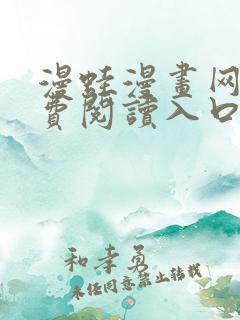 漫蛙漫畫网
費閱讀入口
和孝勇
未经同意禁止转载